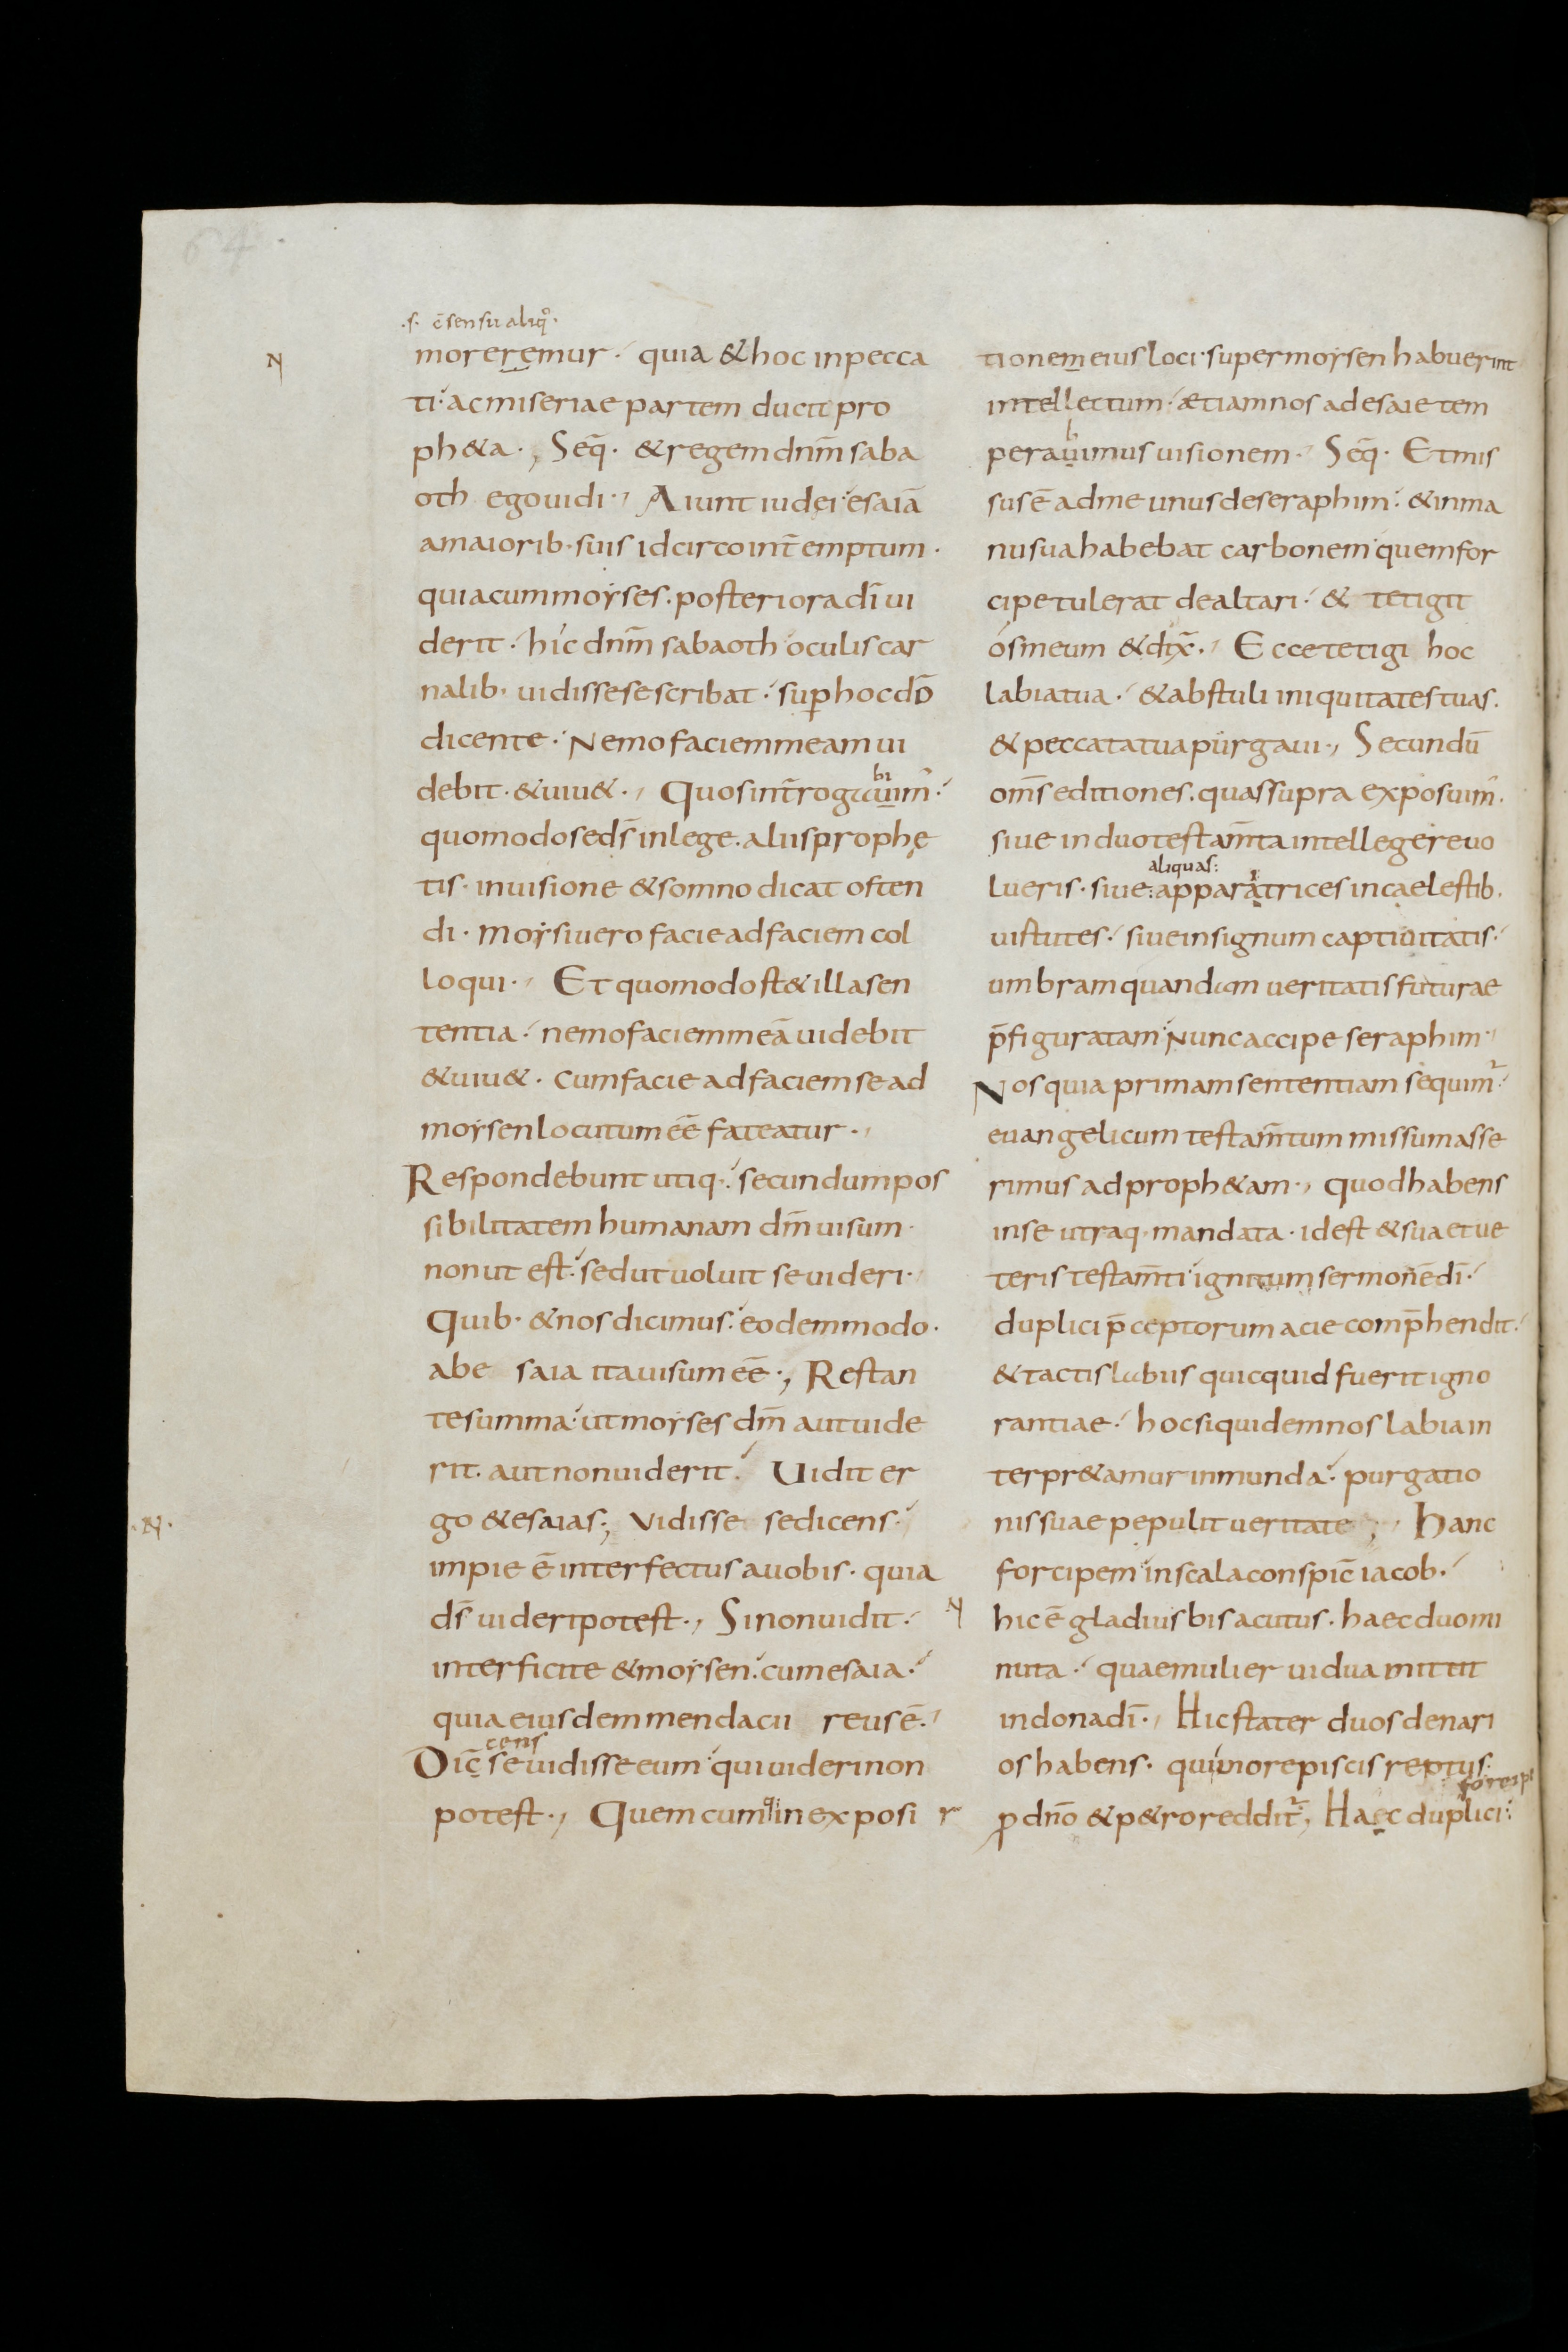 64
.s. c̄ sensu aliq̊.
moreremur. quia & hoc in pecca
ti. ac miseriae partem ducit pro
ph&a., Seq̄. & regem dnm̄ saba
oth ego uidi., Aiunt iudei esaiā
a maiorib. suis idcirco int̄emptum.
quia cum moyses. posteriora dī ui
derit. hic dnm̄ sabaoth oculis car
nalib. uidisse se scribat. sup hoc dō
dicente. Nemo faciem meam ui
debit. & uiu&., Quos int̄rogauim̄.
bi
quomodo sed̄s in lege. aliis prophę
tis. in uisione & somno dicat osten
di. Moysi uero facie ad faciem col
loqui., Et quomodo st& illa sen
tentia. nemo faciem meā uidebit
& uiu&. cum facie ad faciem se ad
moysen locutum ēē fateatur.,
Respondebunt utiq. secundum pos
sibilitatem humanam dm̄ uisum.
non ut est. sed ut uoluit se uideri.,
Quib. & nos dicimus. eodem modo.
ab e saia ita uisum ēē., Restan
te summa ut moyses dm̄ aut uide
rit. aut non uiderit. Uidit er
go & esaias., Vidisse se dicens.
impie ē interfectus a uobis. quia
ds̄ uideri potest., Si non uidit.
interficite & moysen. cum esaia.
quia eiusdem mendacii reus ē.,
cens
Dic̄ se uidisse eum qui uideri non
potest., Quem cumq; in exposi r
tionem eius loci. super moysen habuerint
intellectum. ætiam nos ad esaie tem
b
perauimus uisionem., Seq̄. Et mis
sus ē ad me unus de seraphim. & in ma
nu sua habebat carbonem quem for
cipe tulerat de altari. & tetigit
os meum & dix̄., Ecce tetigi hoc
labia tua. & abstuli iniquitates tuas.
& peccata tua purgaui., Secundū
om̄s editiones. quas supra exposuim̄.
siue in duo testam̄ta intellegere uo
aliquas:
lueris. siue: apparatrices in caelestib.
uistutes. siue in signum captiuitatis.
umbram quandam ueritatis futurae
p̄figuratam. Nunc accipe seraphim.,
Nos quia primam sententiam sequim̄.
euangelicum testam̄tum missum asse
rimus ad proph&am., quod habens
in se utraq. mandata. id est & sua et ue
teris testam̄ti ignitum sermonē dī.
duplici p̄ceptorum acie comp̄hendit.
& tactis labiis quicquid fuerit igno
rantiae. hoc siquidem nos labia in
terpr&amur inmunda. purgatio
nis suae pepulit ueritate., Hanc
forcipem in scala conspic̄ iacob.
hic ē gladius bis acutus. haec duo mi
nuta. quae mulier uidua mittit
in dona dī., Hic stater duos denari
os habens. qui in ore piscis reptus.
forcipe
p dnō & p&ro reddit̄., Haec duplici: